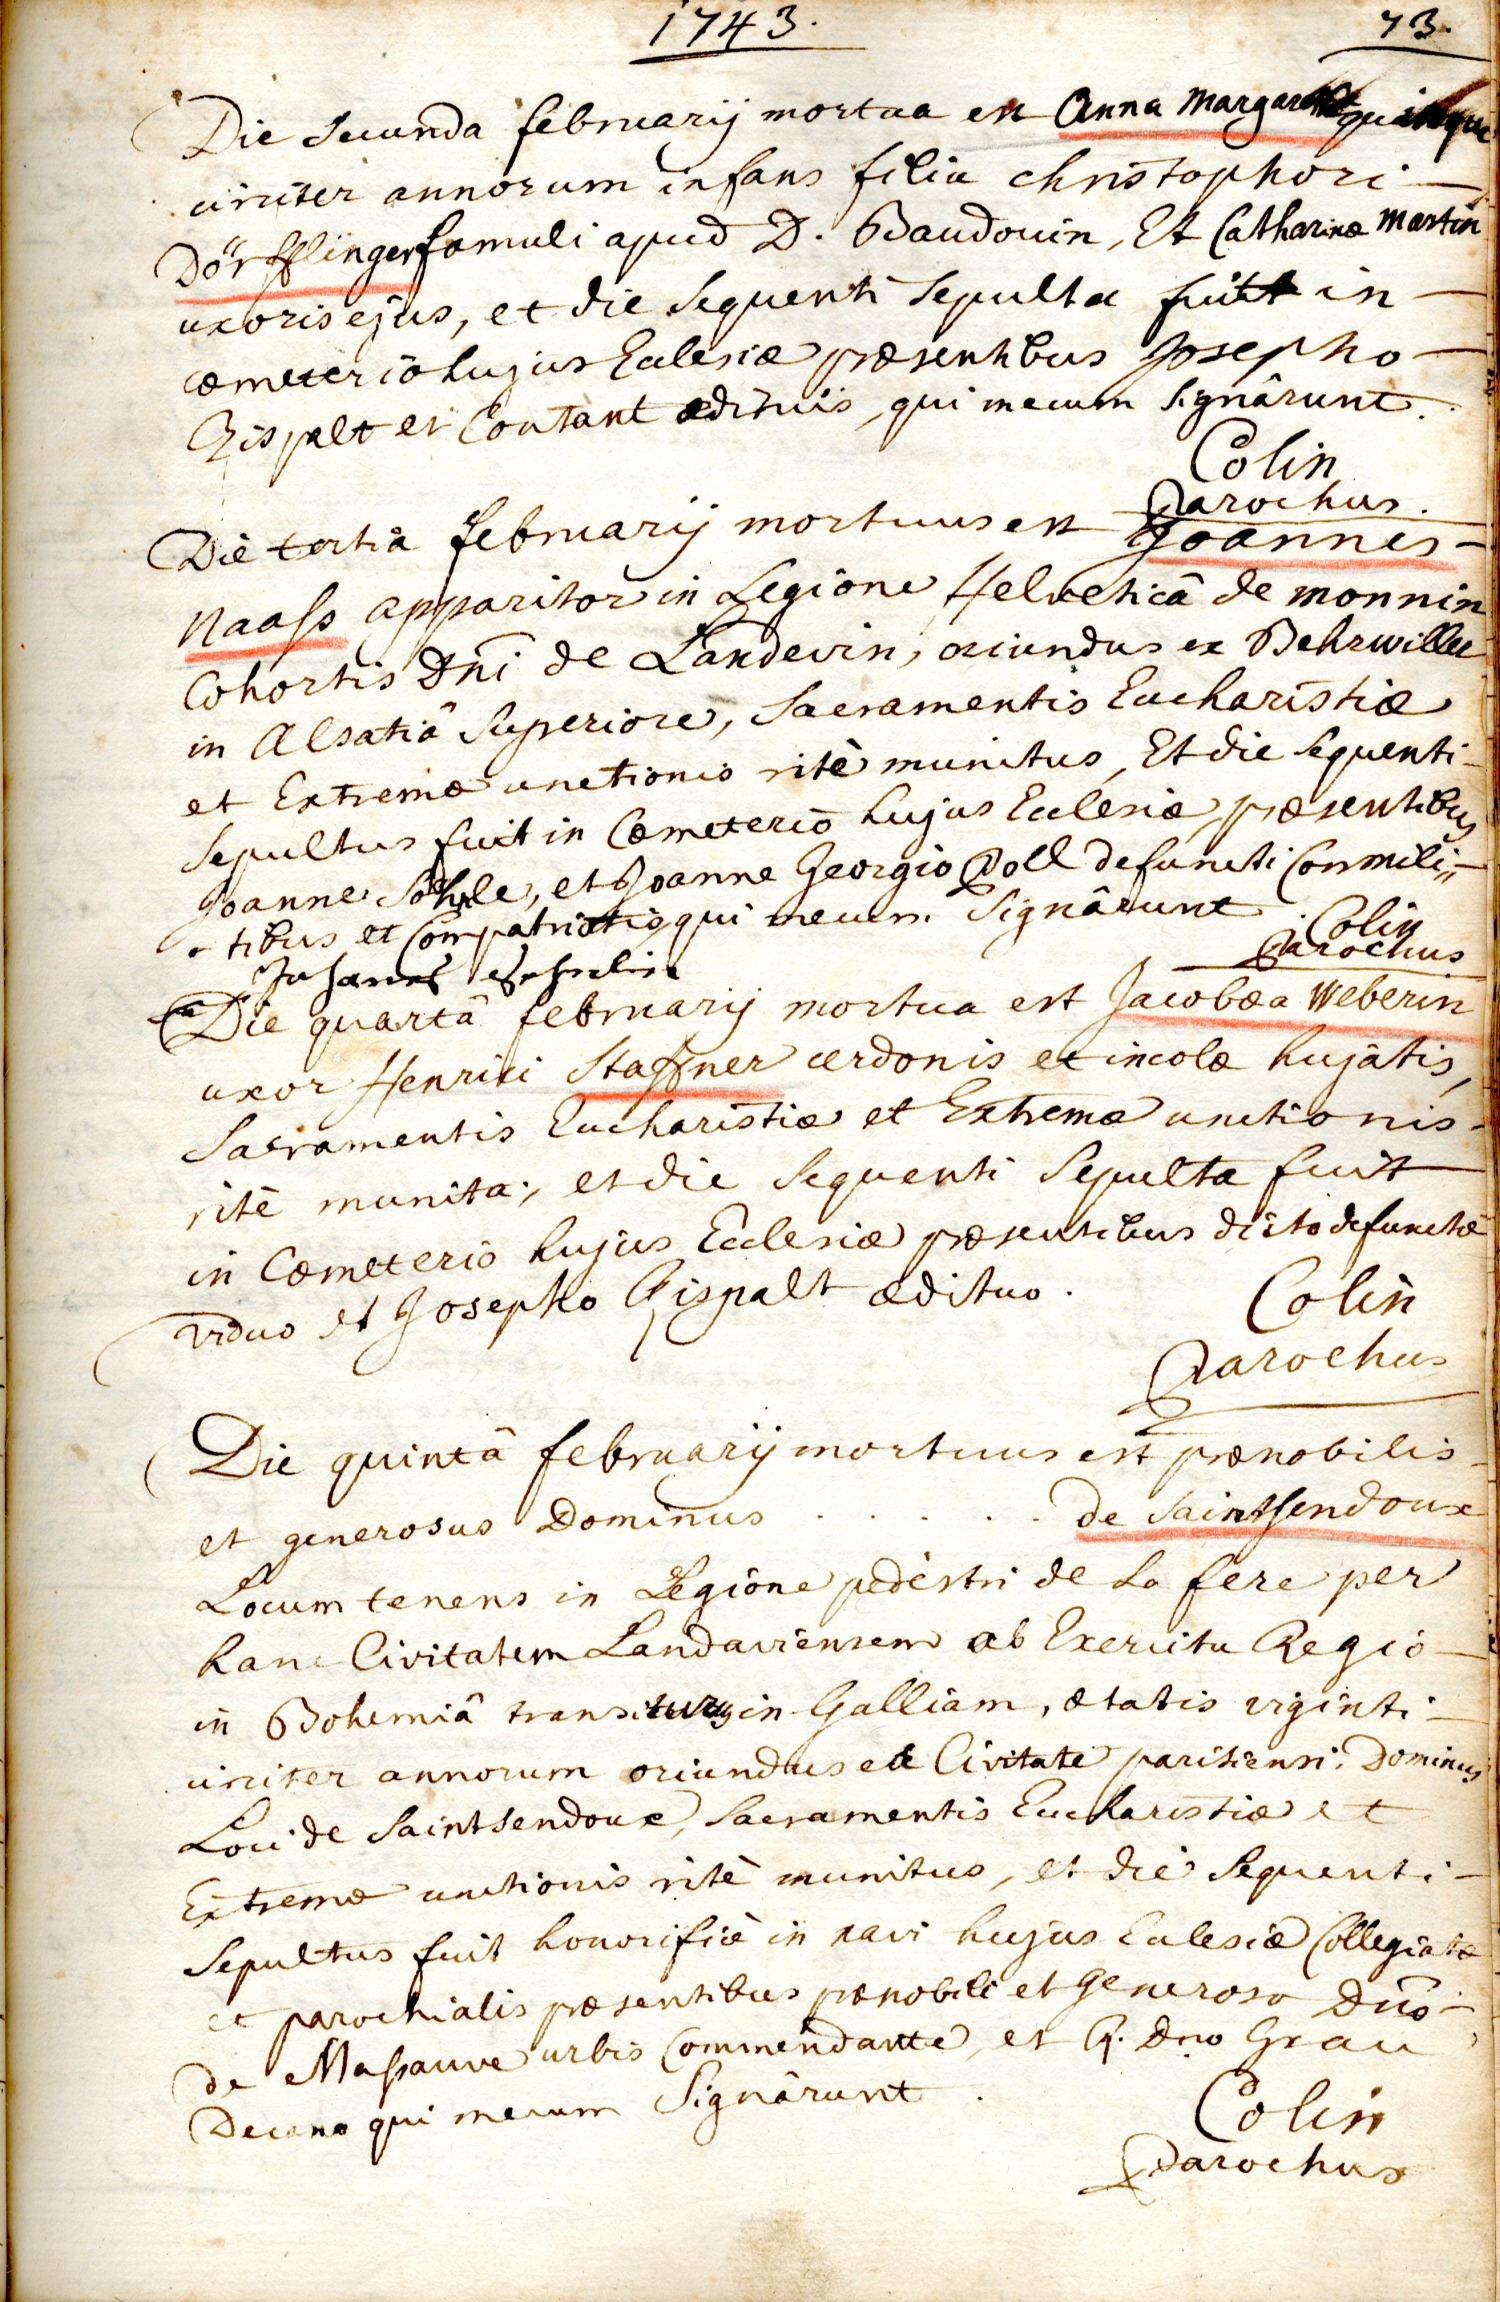 1743.
73.
Die secunda februarij mortua est Anna Margaret quinque
circiter annorum infans filia christophori
Dörfflinger famuli apud D. Baudouin, Et Catharinæ Martin
uxoris ejus, et die sequenti sepulta fuit in
cœmeterio hujus Ecclesiæ præsentibus Josepho
Rispalt et Coutant ædituis, qui mecum signârunt.
Colin
Parochus.
Die tertiâ februarij mortuus est Joannes
Naass apparitor in Legione Helveticâ de monnin
Cohortis Dni de Landevin, oriundus ex Behrwiller
in Alsatiâ Superiore, Sacramentis Eucharistiæ
et Extremæ unctionis ritè munitus, Et die sequenti
sepultus fuit in Cœmeterio hujus Ecclesiæ præsentibus
Joanne, et Joanne Georgio Doll defuncti Commili=
tibus et Compatriotis qui mecum signârunt.
Colin
Parochus
Die quartâ februarij mortua est Jacobæa Weberin
uxor Henrici Staffner cerdonis et incolæ hujatis,
Sacramentis Eucharistiæ et Extremæ unctionis
ritè munita, et die sequenti sepulta fuit
in Cœmeterio hujus Ecclesiæ præsentibus dicto defunctæ
viduo et Josepho Rispalt ædituo.
Colin
Parochus
Die quintâ februarij mortuus est prænobilis
et generosus Dominus . . . . . de Saintsendoux
Locum tenens in Legione pedestri de La fere per
hanc Civitatem Landaviensem ab Exercitu Regio
in Bohemiâ transiturus in Galliam, ætatis viginti
circiter annorum oriundus e Civitate parisiensi. Dominus
Loui de Saintsendoux, Sacramentis Eucharistiæ et
Extremæ unctionis ritè munitus, et die sequenti
sepultus fuit honorificè in navi hujus Ecclesiæ Collegiatæ
et parochialis præsentibus prænobili et generoso Dnō
de Massauve urbis Commendante, et R. Dno Grau
Decano qui mecum signârunt.
Colin
Parochus